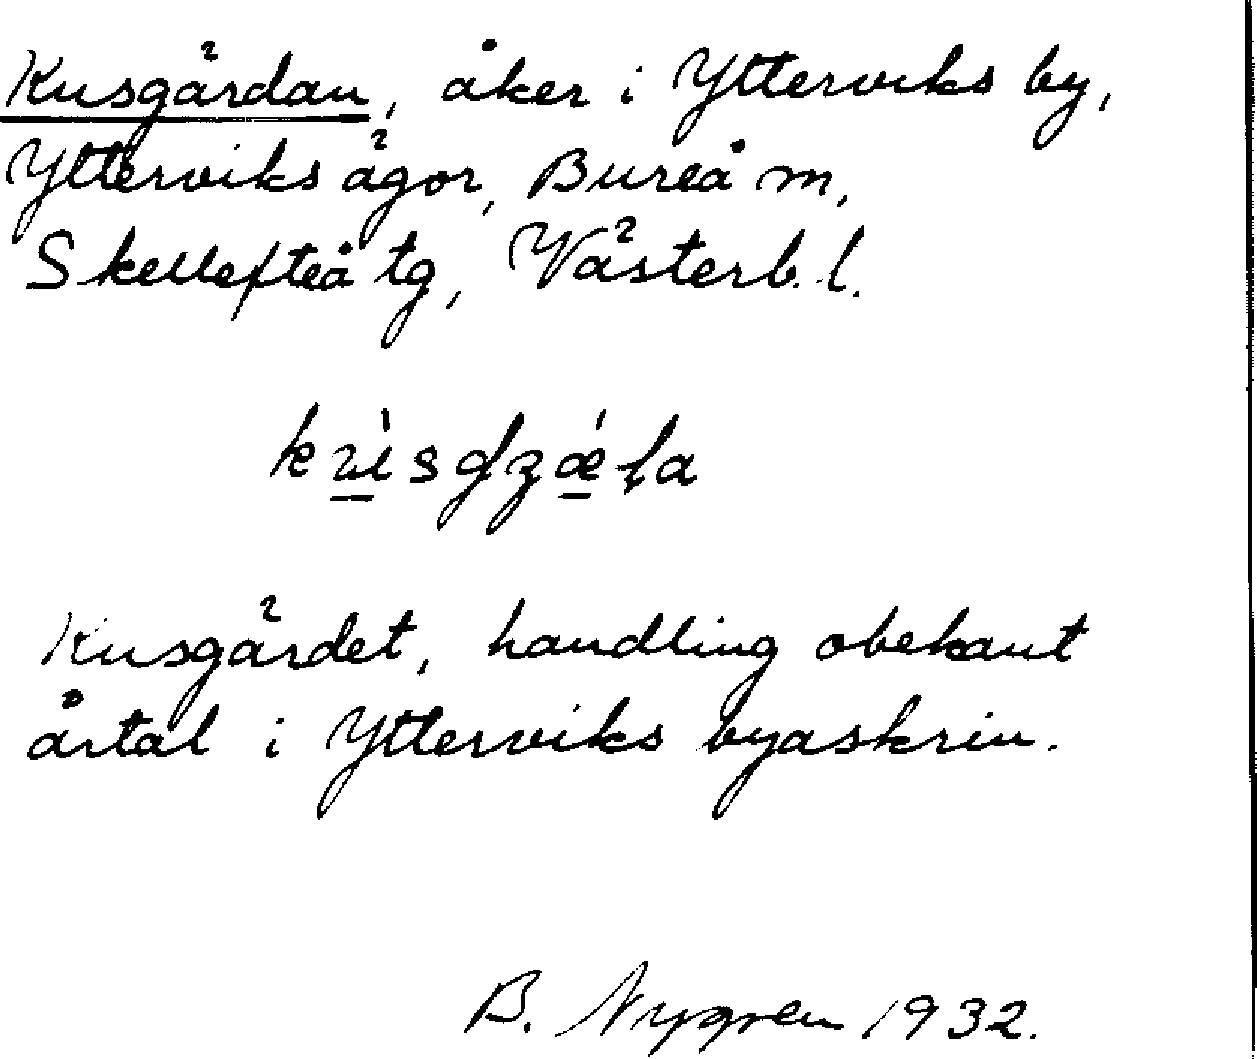 Kusgärdan, åker i Ytterviks by,
Ytterviks ägor, Bureå m,
Skellefteå tg, Västerb. l.
Kusgärdet, handling obekant
årtal i Ytterviks byaskrin.
B. Nygren 1932.